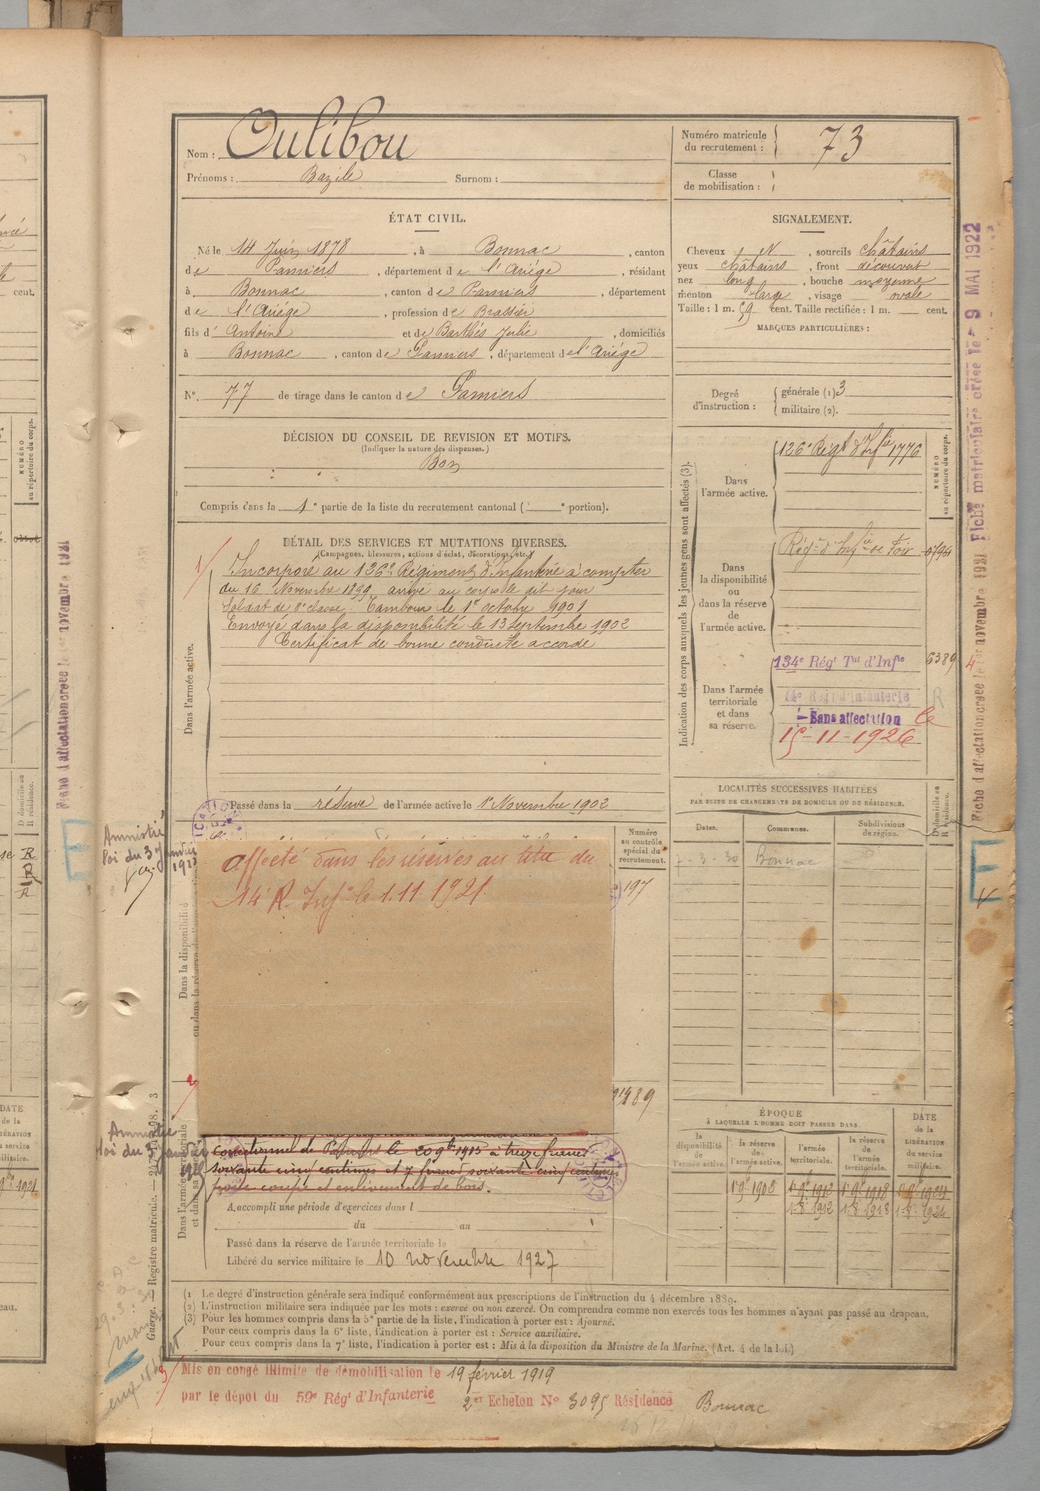 Nom : Oulibou
Prénoms : Bazile Surnom :
Numéro matricule du recrutement : 73
Classe de mobilisation :
ÉTAT CIVIL.
Né le 14 Juin 1878, à Bonnac, canton
de Pamiers, département de l'Ariége, résidant
à Bonnac, canton de Pamiers, département
de l'Ariége, profession de Brassier
fils d' Antoine et de Barthés Julie, domiciliés
à Bonnac, canton de Pamiers, département de l'Ariége
N°. 77 de tirage dans le canton de Pamiers
SIGNALEMENT.
Cheveux N, sourcils châtains
yeux châtains, front découvert
nez long, bouche moyenne
menton large, visage ovale
Taille : 1 m. 59 cent. Taille rectifiée : 1 m. cent.
MARQUES PARTICULIÈRES :
Degré d'instruction : générale (1) 3
militaire (2).
DÉCISION DU CONSEIL DE REVISION ET MOTIFS.
(Indiquer la nature des dispenses.)
Bon
Compris dans la 1e partie de la liste du recrutement cantonal ( e portion).
DÉTAIL DES SERVICES ET MUTATIONS DIVERSES.
(Campagnes, blessures, actions d'éclat, décorations, etc.)
Dans l'armée active.
Incorporé au 126e Régiment d'Infanterie à compter
du 16 Novembre 1899 arrivé au corps le dit jour
Soldat de 2e classe. Tambour le 1er octobre 1901
Envoyé dans la disponibilité le 13 septembre 1902
Certificat de bonne conduite accordé
Passé dans la réserve de l'armée active le 1er Novembre 1902
Indication des corps auxquels les jeunes gens sont affectés (3).
NUMÉRO au répertoire du corps.
Dans l'armée active.
126e Régt d'Infie 1776
Dans la disponibilité ou dans la réserve de l'armée active.
Régt d'Infie de Foix 0794
Dans l'armée territoriale et dans sa réserve.
134e Régt Tal d'Infie 6389
14e Reg d'Infanterie
Sans affectation le
15-11-1926
Fiche d'affectation créée le 1er novembre 1921
Fiche matriculaire créée le 9 MAI 1922
LOCALITÉS SUCCESSIVES HABITÉES
PAR SUITE DE CHANGEMENTS DE DOMICILE OU DE RÉSIDENCE.
Dates. Communes. Subdivisions de région. D domicile ou R résidence.
7-3-30 Bonnac D
Amnistié
loi du 3 Janvier
Numéro au contrôle spécial du recrutement.
197
affecté dans les réserves au titre du
14e R. Infie le 1.11.1921
Dans la disponibilité
Amnistié
loi du 3 Janvier
Dans l'armée territoriale
correctionnel de Pamiers le 20 9bre 1915 à treize francs
soixante cinq centimes et 7 francs soixante cinq centimes
pour coupe et enlèvement de bois.
A accompli une période d'exercices dans l
du au
Passé dans la réserve de l'armée territoriale le
Libéré du service militaire le 10 novembre 1927
ÉPOQUE
À LAQUELLE L'HOMME DOIT PASSER DANS
la disponibilité de l'armée active. la réserve de l'armée active. l'armée territoriale. la réserve de l'armée territoriale.
DATE de la LIBÉRATION du service militaire.
(1) Le degré d'instruction générale sera indiqué conformément aux prescriptions de l'instruction du 4 décembre 1889.
(2) L'instruction militaire sera indiquée par les mots : exercé ou non exercé. On comprendra comme non exercés tous les hommes n'ayant pas passé au drapeau.
(3) Pour les hommes compris dans la 5e partie de la liste, l'indication à porter est : Ajourné.
Pour ceux compris dans la 6e liste, l'indication à porter est : Service auxiliaire.
Pour ceux compris dans la 7e liste, l'indication à porter est : Mis à la disposition du Ministre de la Marine. (Art. 4 de la loi.)
Mis en congé illimité de démobilisation le 19 février 1919
par le dépôt du 59e Régt d'Infanterie 2er Echelon N° 3095 Résidence Bonnac